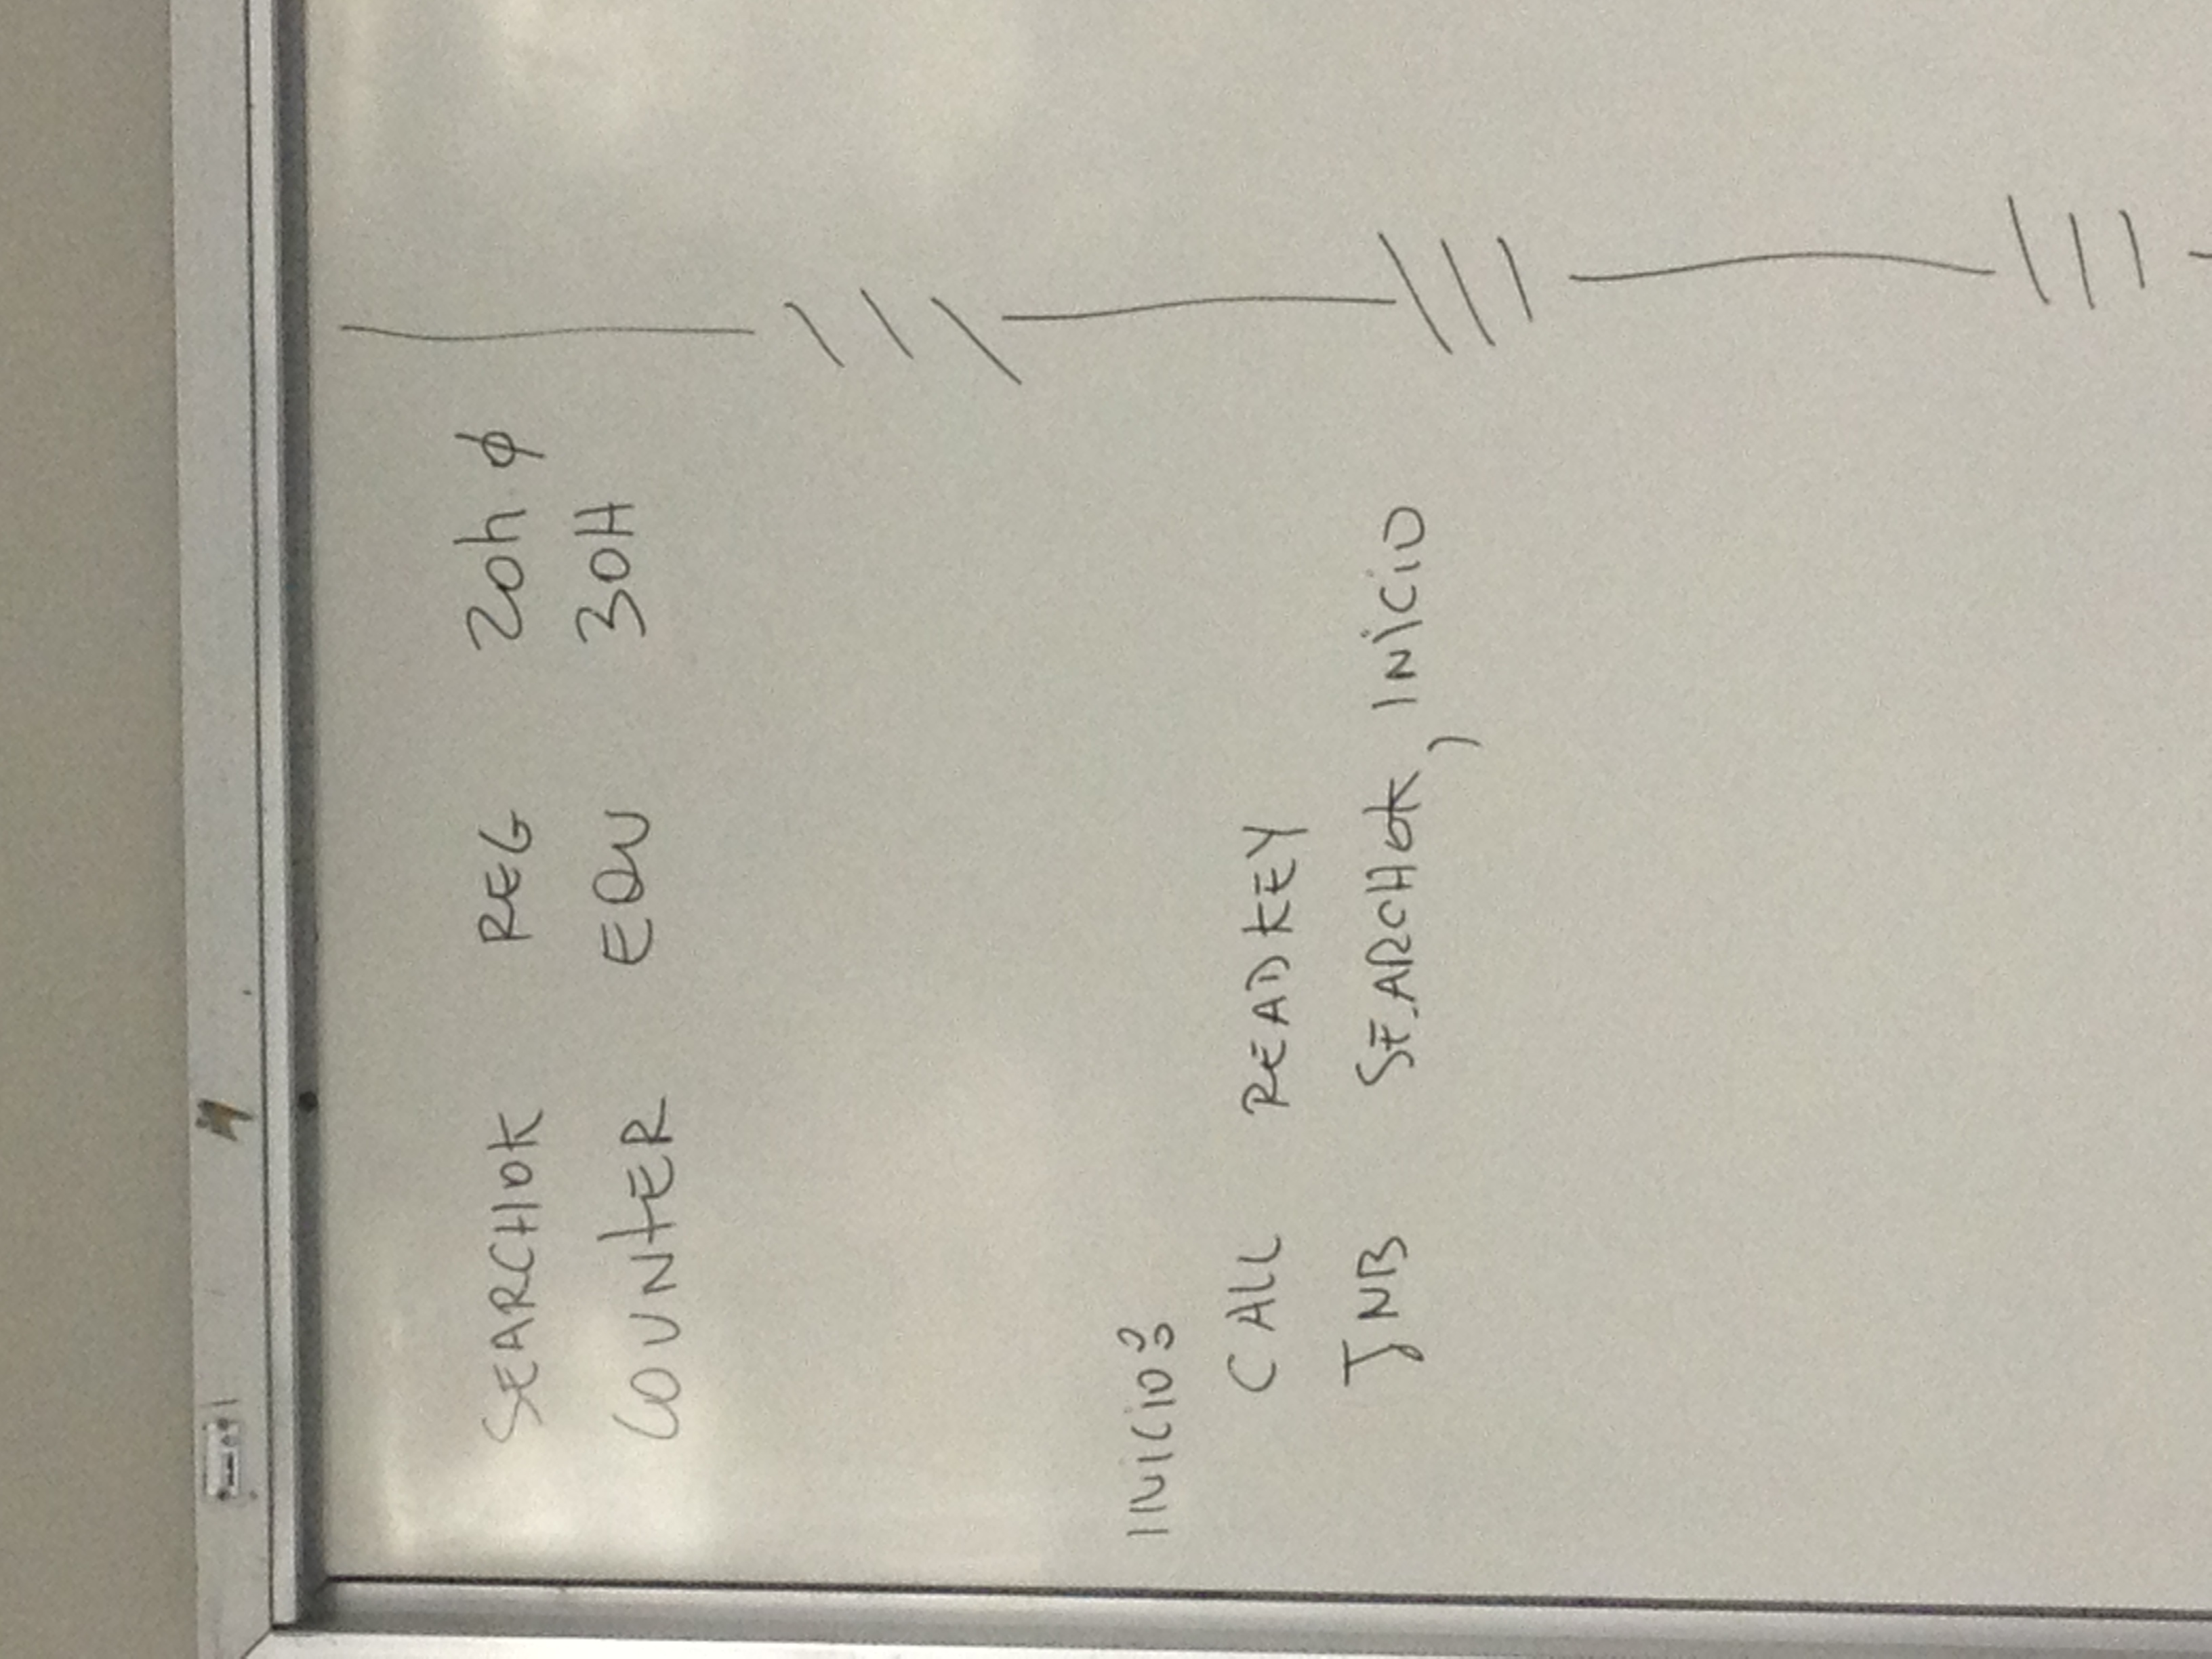 SEARCHOK REG 20h ϕ
COUNTER EQU 30H
INICIO:
CALL READKEY
JNB SEARCHOK, INICIO